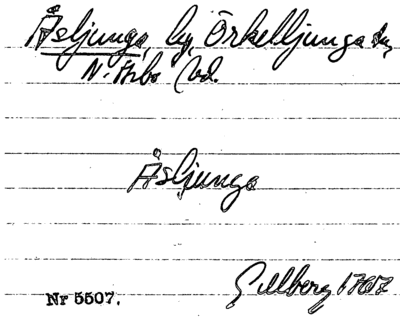 Åsljunga, by, Örkelljunga sn,
N. Åsbo hd.
Åsljunga
Gillberg 1767
Nr 5507.